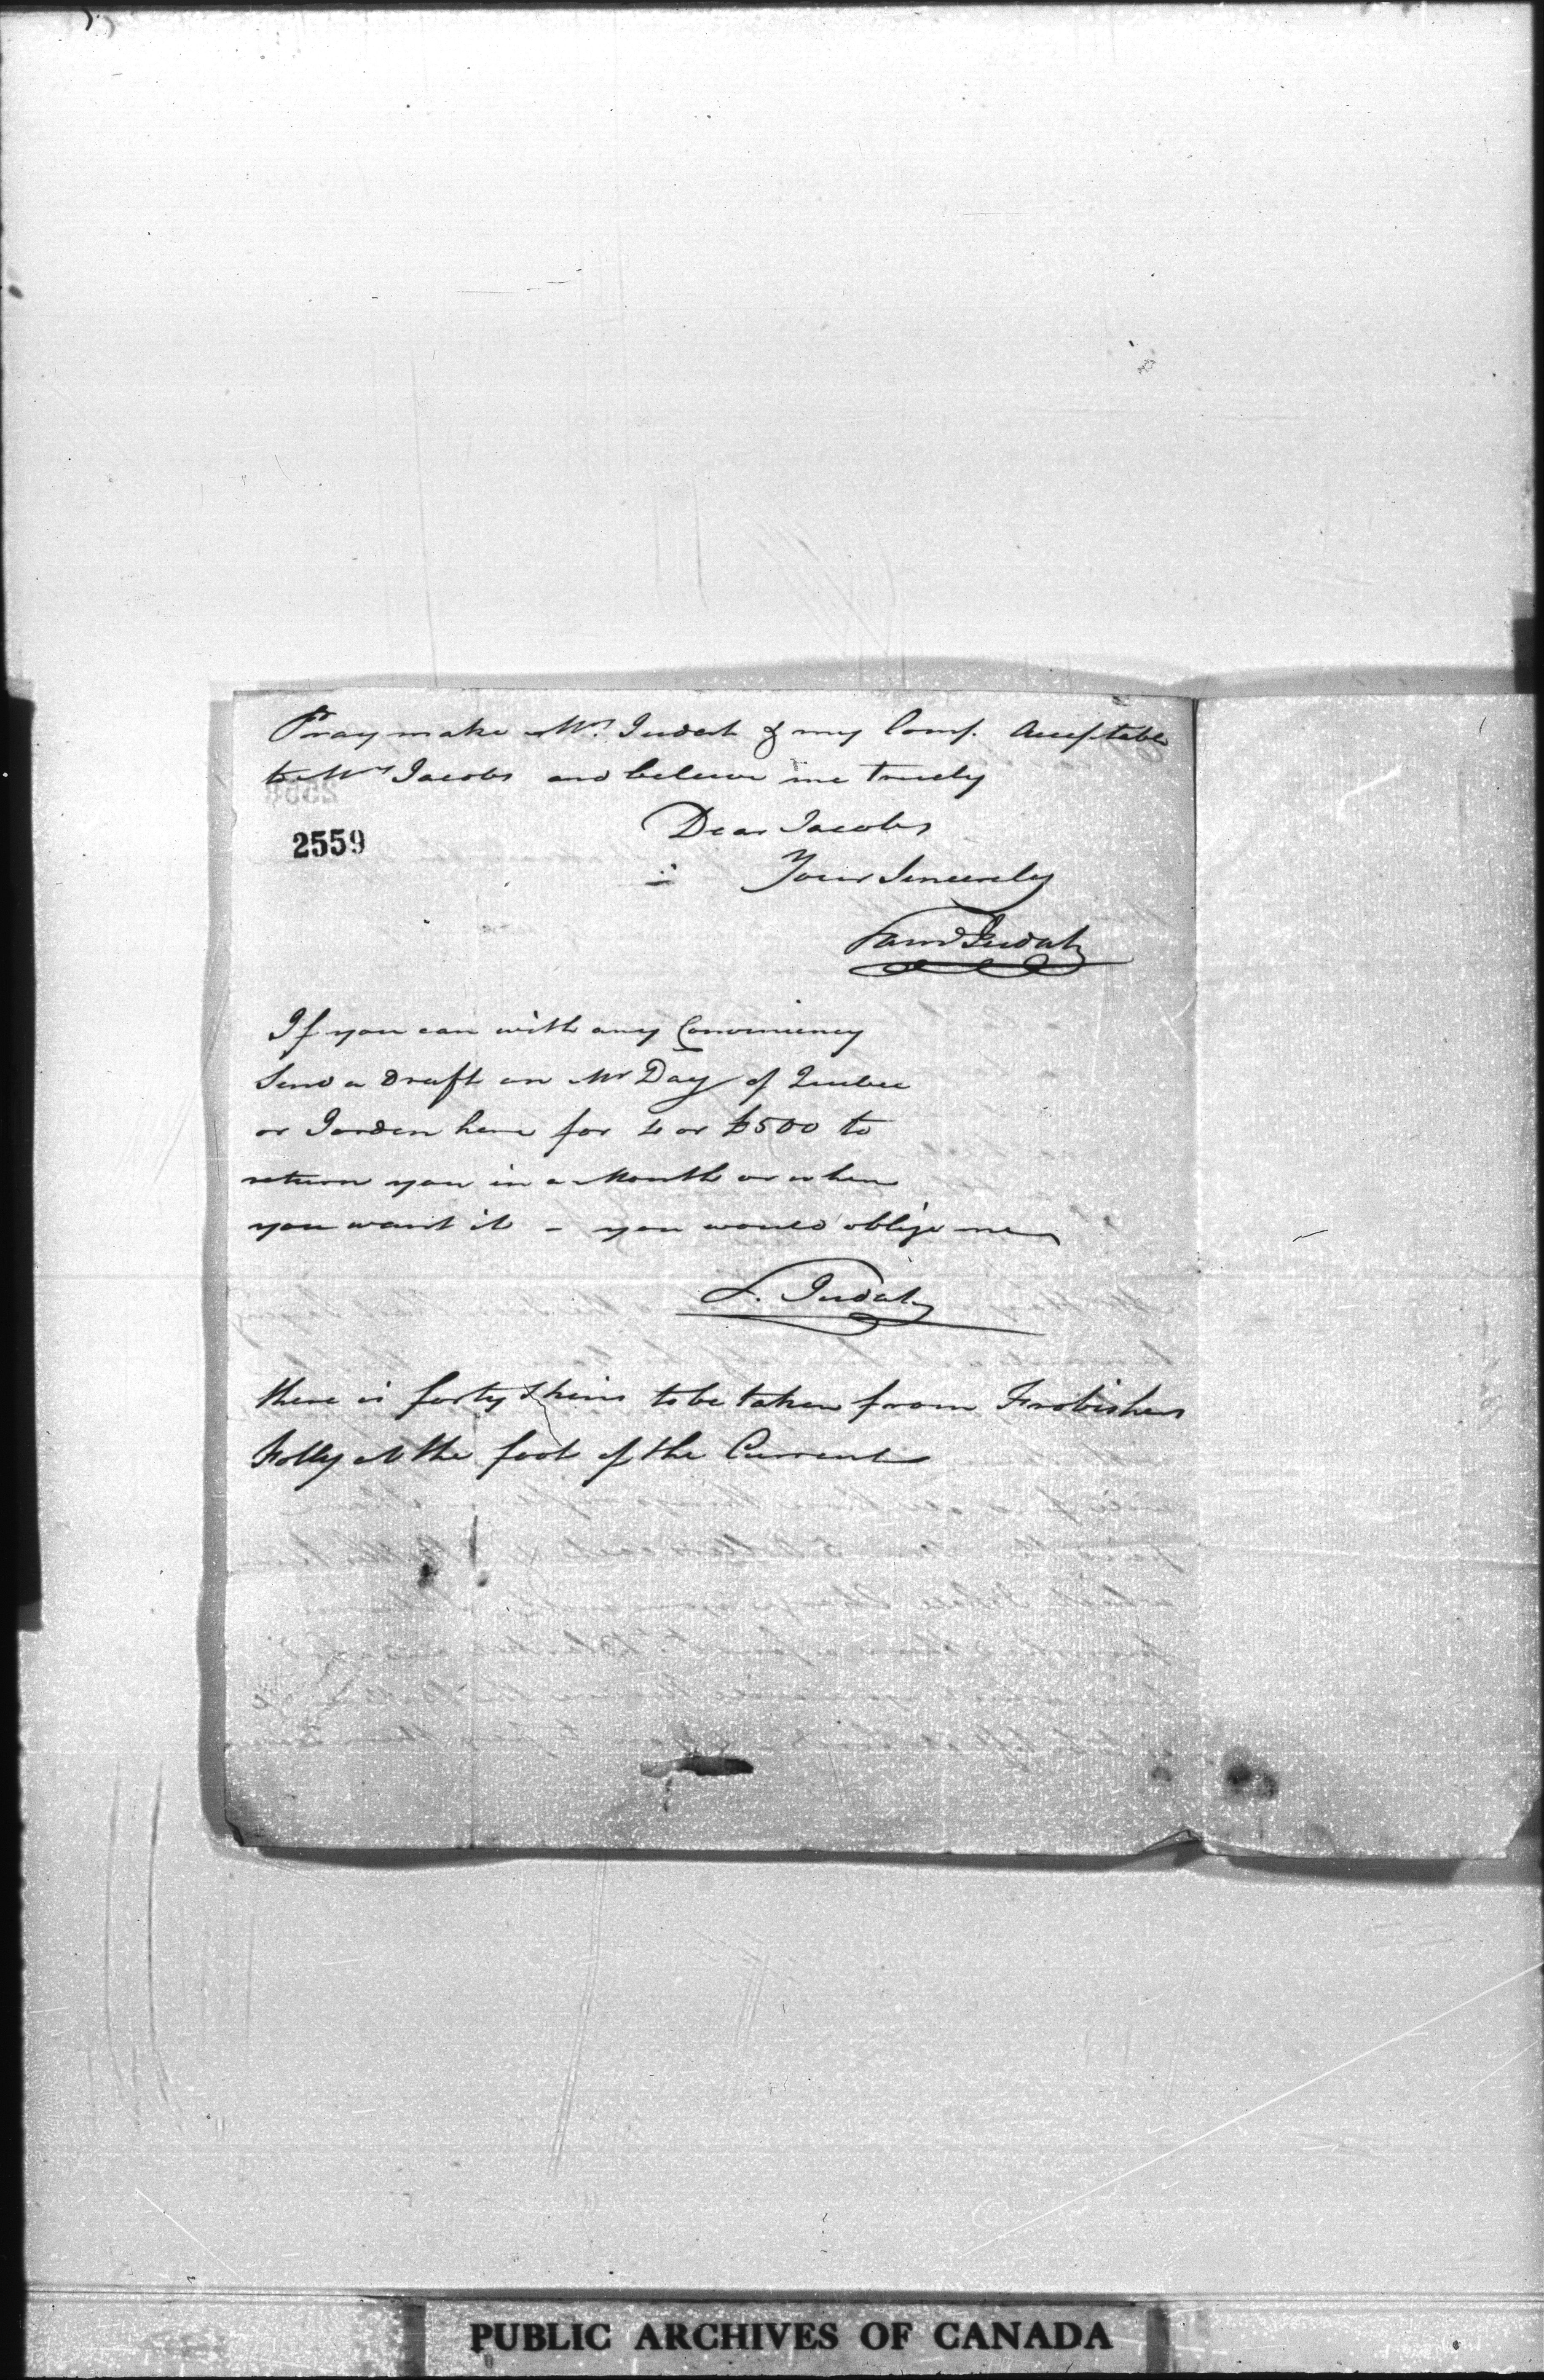 Pray make Mrs. Judah & my Comp. Acceptable
to Mrs Jacobs and beleive me truely
2559
Dear Jacobs
Your Sincerely
Saml Judah
If you can with any Conveniency
Send a draft on Mr Day of Quebec
or Jorden here for 4 or £500 to
return you in a Month or when
you want it - you would oblige me
S. Judah
there is forty Skins to be taken from Frobishers
Folly at the foot of the Current
PUBLIC ARCHIVES OF CANADA